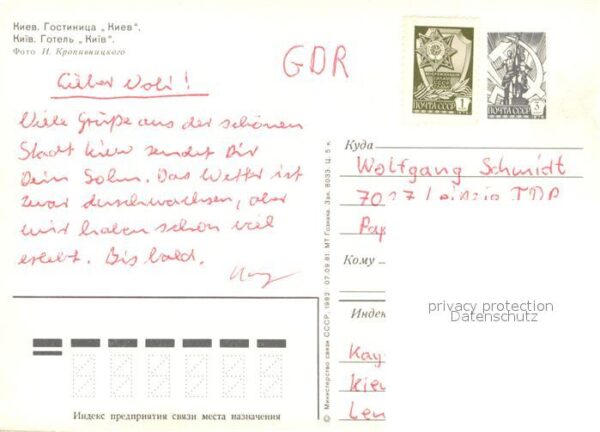 Киев. Гостиница „Киев".
Київ. Готель „Київ".
Фото И. Кропивницкого
GDR
Lieber Vati!
Viele Grüße aus der schönen
Stadt Kiew sendet Dir
Dein Sohn. Das Wetter ist
zwar durchwachsen, aber
wir haben schon viel
erlebt. Bis bald.
Kay
1
ПОЧТА СССР
3
ПОЧТА СССР
Куда
Wolfgang Schmidt
7027 Leipzig DDR
Кому
privacy protection
Datenschutz
Индек
Kay
Kiew
Len
Индекс предприятия связи места назначения
© Министерство связи СССР, 1982 07.09.81. МТ Гознака. Зак. 8033. Ц. 5 к.